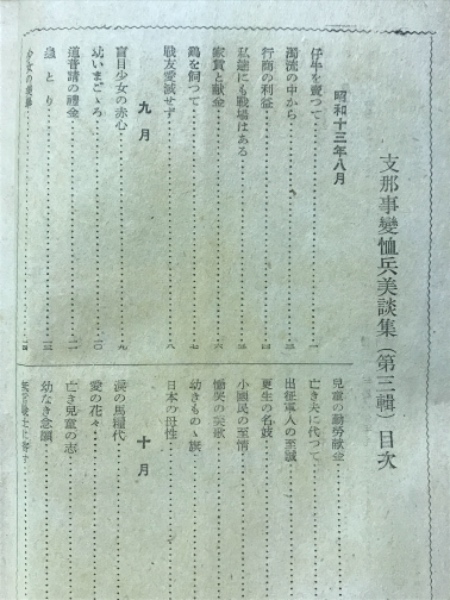 支那事變恤兵美談集（第三輯）目次
昭和十三年八月
仔牛を賣つて……一
濁流の中から……三
行商の利益……四
私達にも戰場はある……五
家賃と献金……六
鷄を飼つて……七
戰友愛滅せず……八
九月
盲目少女の赤心……九
幼いまごゝろ……一〇
道普請の禮金……一一
蟲とり……一三
……一四
兒童の勤勞献金……
亡き夫に代つて……
出征軍人の至誠……
更生の名鼓……
小國民の至情……
慟哭の美獻……
幼きものゝ旗……
日本の母性……
十月
涙の馬糧代……
愛の花々……
亡き兒童の志……
幼なき念願……